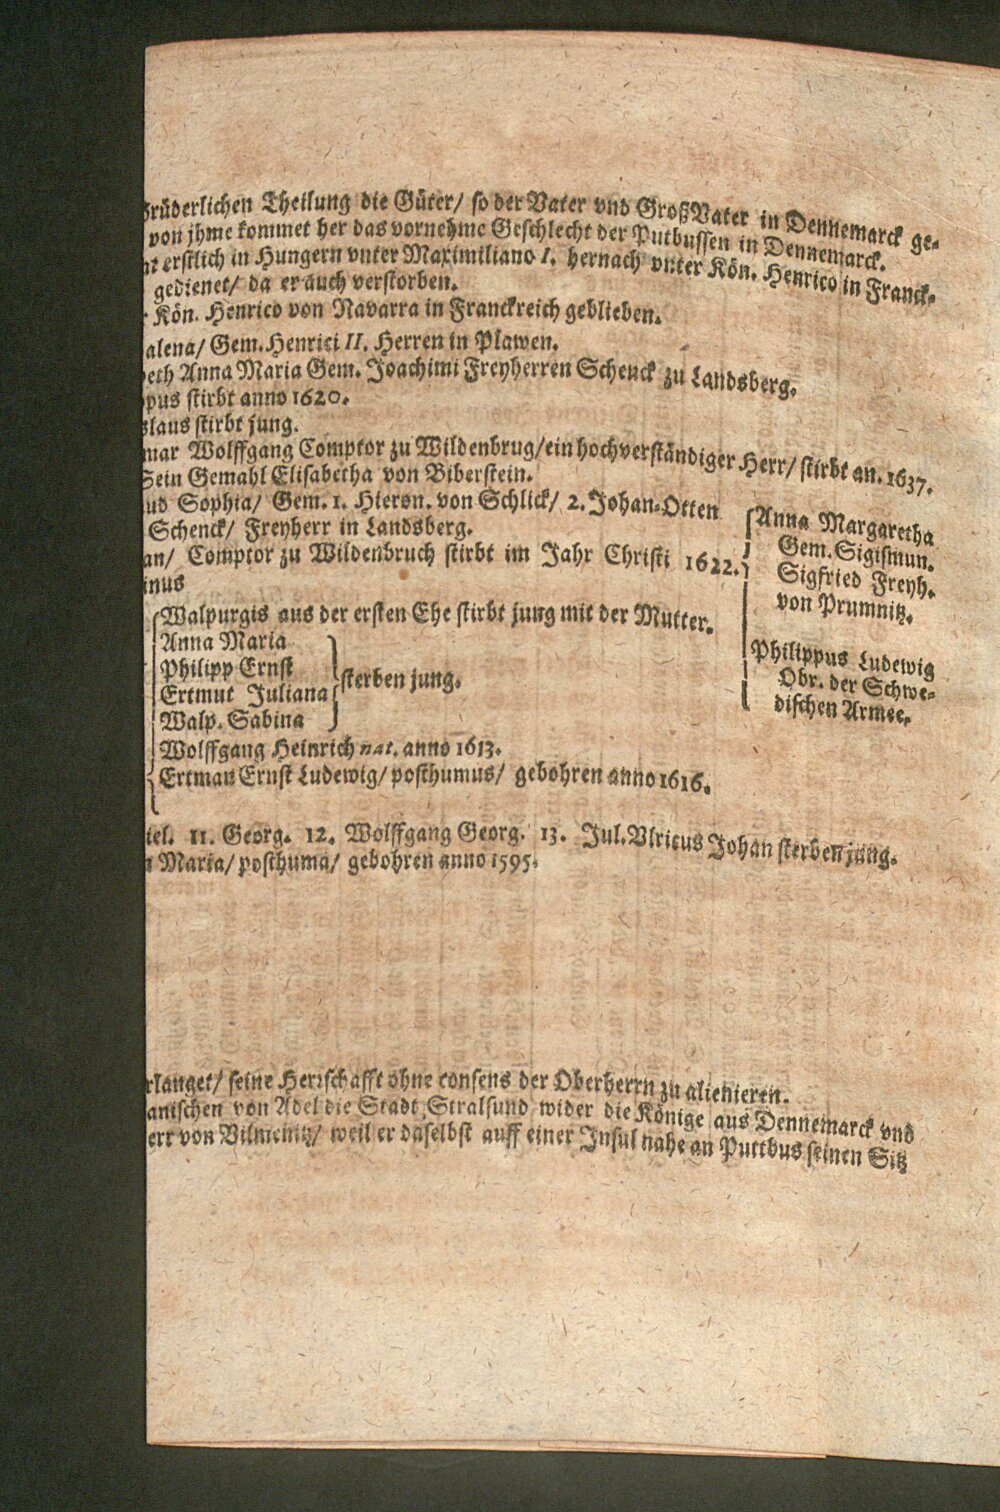 brüderlichen Theilung die Güter/ so der Vater vnd GroßVater in Dennemarck ge-
von jhme kommet her das vornehme Geschlecht der Putbussen in Dennemarck.
at erstlich in Hungern vnter Maximiliano I. hernach vnter Kön. Henrico in Franck-
gedienet/ da er auch verstorben.
Kön. Henrico von Navarra in Franckreich geblieben.
alena/ Gem. Henrici II. Herren in Plawen.
beth Anna Maria Gem. Joachimi Freyherren Schenck zu Landsberg.
pus stirbt anno 1620.
slaus stirbt jung.
mar Wolffgang Comptor zu Wildenbrug/ ein hochverständiger Herr/ stirbt an. 1637.
Sein Gemahl Elisabetha von Biberstein.
ud Sophia/ Gem. 1. Hieron. von Schlick/ 2. Johan-Otten
Schenck/ Freyherr in Landsberg.
an/ Comptor zu Wildenbruch stirbt im Jahr Christi 1622.
inus
Anna Margaretha
Gem. Sigismun.
Sigfried Freyh.
von Prumnitz.
Philippus Ludewig
Obr. der Schwe-
dischen Armee.
Walpurgis aus der ersten Ehe stirbt jung mit der Mutter.
Anna Maria
Philipp Ernst
Ertmut Juliana
Walp. Sabina
sterben jung.
Wolffgang Heinrich nat. anno 1613.
Ertman Ernst Ludewig/ posthumus/ gebohren anno 1616.
iel. 11. Georg. 12. Wolffgang Georg. 13. Jul. Vlricus Johan sterben jung.
a Maria/ posthuma/ gebohren anno 1595.
rlanget/ seine Herrschafft ohne consens der Oberherrn zu alienieren.
anischen von Adel die Stadt Stralsund wider die Könige aus Dennemarck vnd
err von Vilmenitz/ weil er daselbst auff einer Insul nahe an Puttbus seinen Sitz